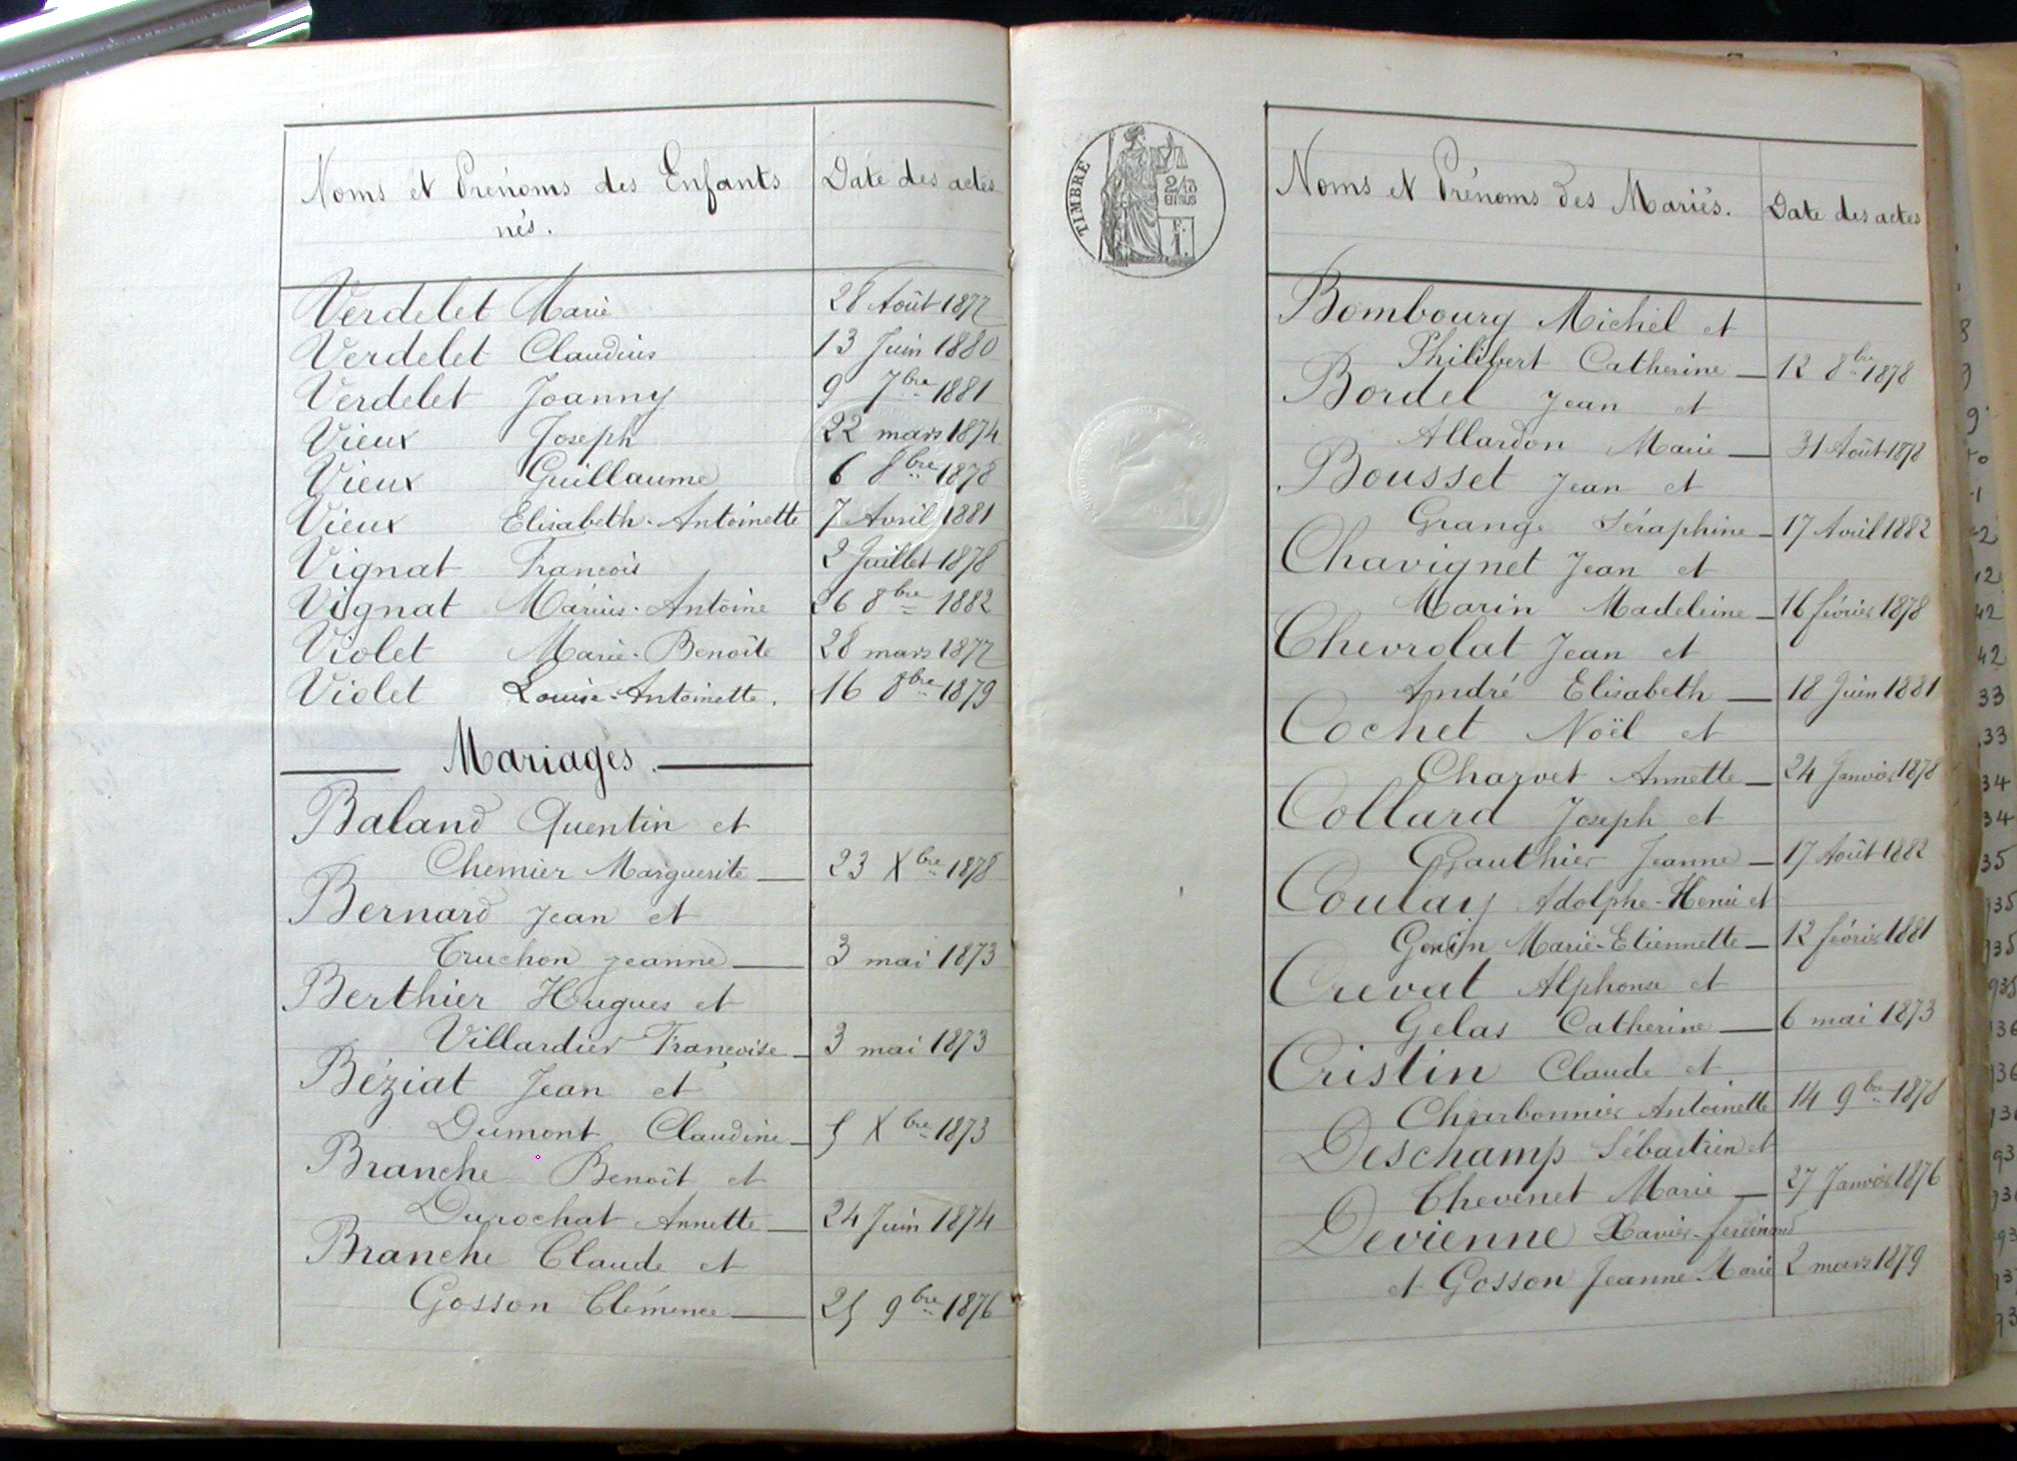 Noms et Prénoms des Enfants
nés.
Date des actes
Verdelet Marie 28 Août 1877
Verdelet Claudius 13 Juin 1880
Verdelet Joanny 9 7bre 1881
Vieux Joseph 22 mars 1874
Vieux Guillaume 6 8bre 1878
Vieux Elisabeth-Antoinette 7 Avril 1881
Vignat François 2 Juillet 1878
Vignat Marius-Antoine 26 8bre 1882
Violet Marie-Benoîte 28 mars 1877
Violet Louise-Antoinette. 16 8bre 1879
Mariages.
Baland Quentin et
Chemier Marguerite 23 Xbre 1878
Bernard Jean et
Truchon Jeanne 3 mai 1873
Berthier Hugues et
Villardier Françoise 3 mai 1873
Béziat Jean et
Dumont Claudine 5 Xbre 1873
Branche Benoît et
Durochat Annette 24 Juin 1874
Branche Claude et
Gosson Clémence 25 9bre 1876
TIMBRE
2/10
EN SUS
F.
1.
Noms et Prénoms des Mariés.
Date des actes
Bombourg Michel et
Philibert Catherine 12 8bre 1878
Bordel Jean et
Allardon Marie 31 Août 1878
Bousset Jean et
Grange Séraphine 17 Avril 1882
Chavignet Jean et
Marin Madeleine 16 février 1878
Chevrolat Jean et
André Elisabeth 18 Juin 1881
Cochet Noël et
Charvet Annette 24 Janvier 1878
Collard Joseph et
Gauthier Jeanne 17 Août 1882
Coulay Adolphe-Henri et
Genin Marie-Etiennette 12 février 1881
Crevat Alphonse et
Gelas Catherine 6 mai 1873
Cristin Claude et
Charbonnier Antoinette 14 9bre 1878
Deschamp Sébastien et
Chevenet Marie 27 Janvier 1876
Devienne Xavier-ferdinand
et Gosson Jeanne-Marie 2 mars 1879